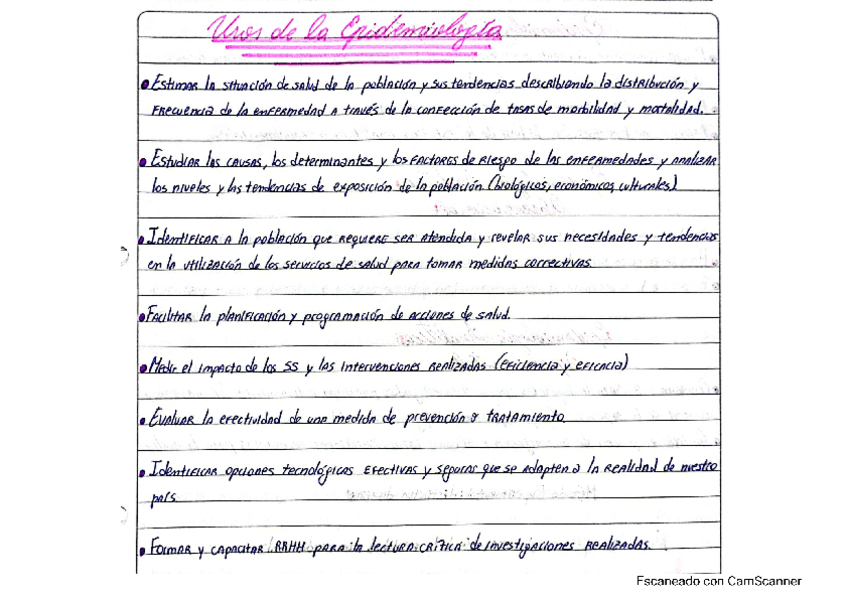 Usos de la Epidemiología
• Estimar la situación de salud de la población y sus tendencias describiendo la distribución y
frecuencia de la enfermedad a través de la confección de tasas de morbilidad y mortalidad.
• Estudiar las causas, los determinantes y los factores de riesgo de las enfermedades y analizar
los niveles y las tendencias de exposición de la población (biológicos, económicos, culturales)
• Identificar a la población que requiere ser atendida y revelar sus necesidades y tendencias
en la utilización de los servicios de salud para tomar medidas correctivas.
• Facilitar la planificación y programación de acciones de salud.
• Medir el impacto de los SS y las intervenciones realizadas (eficiencia y eficacia)
• Evaluar la efectividad de una medida de prevención o tratamiento.
• Identificar opciones tecnológicas efectivas y seguras que se adapten a la realidad de nuestro
país
• Formar y capacitar RRHH para la lectura crítica de investigaciones realizadas.
Escaneado con CamScanner